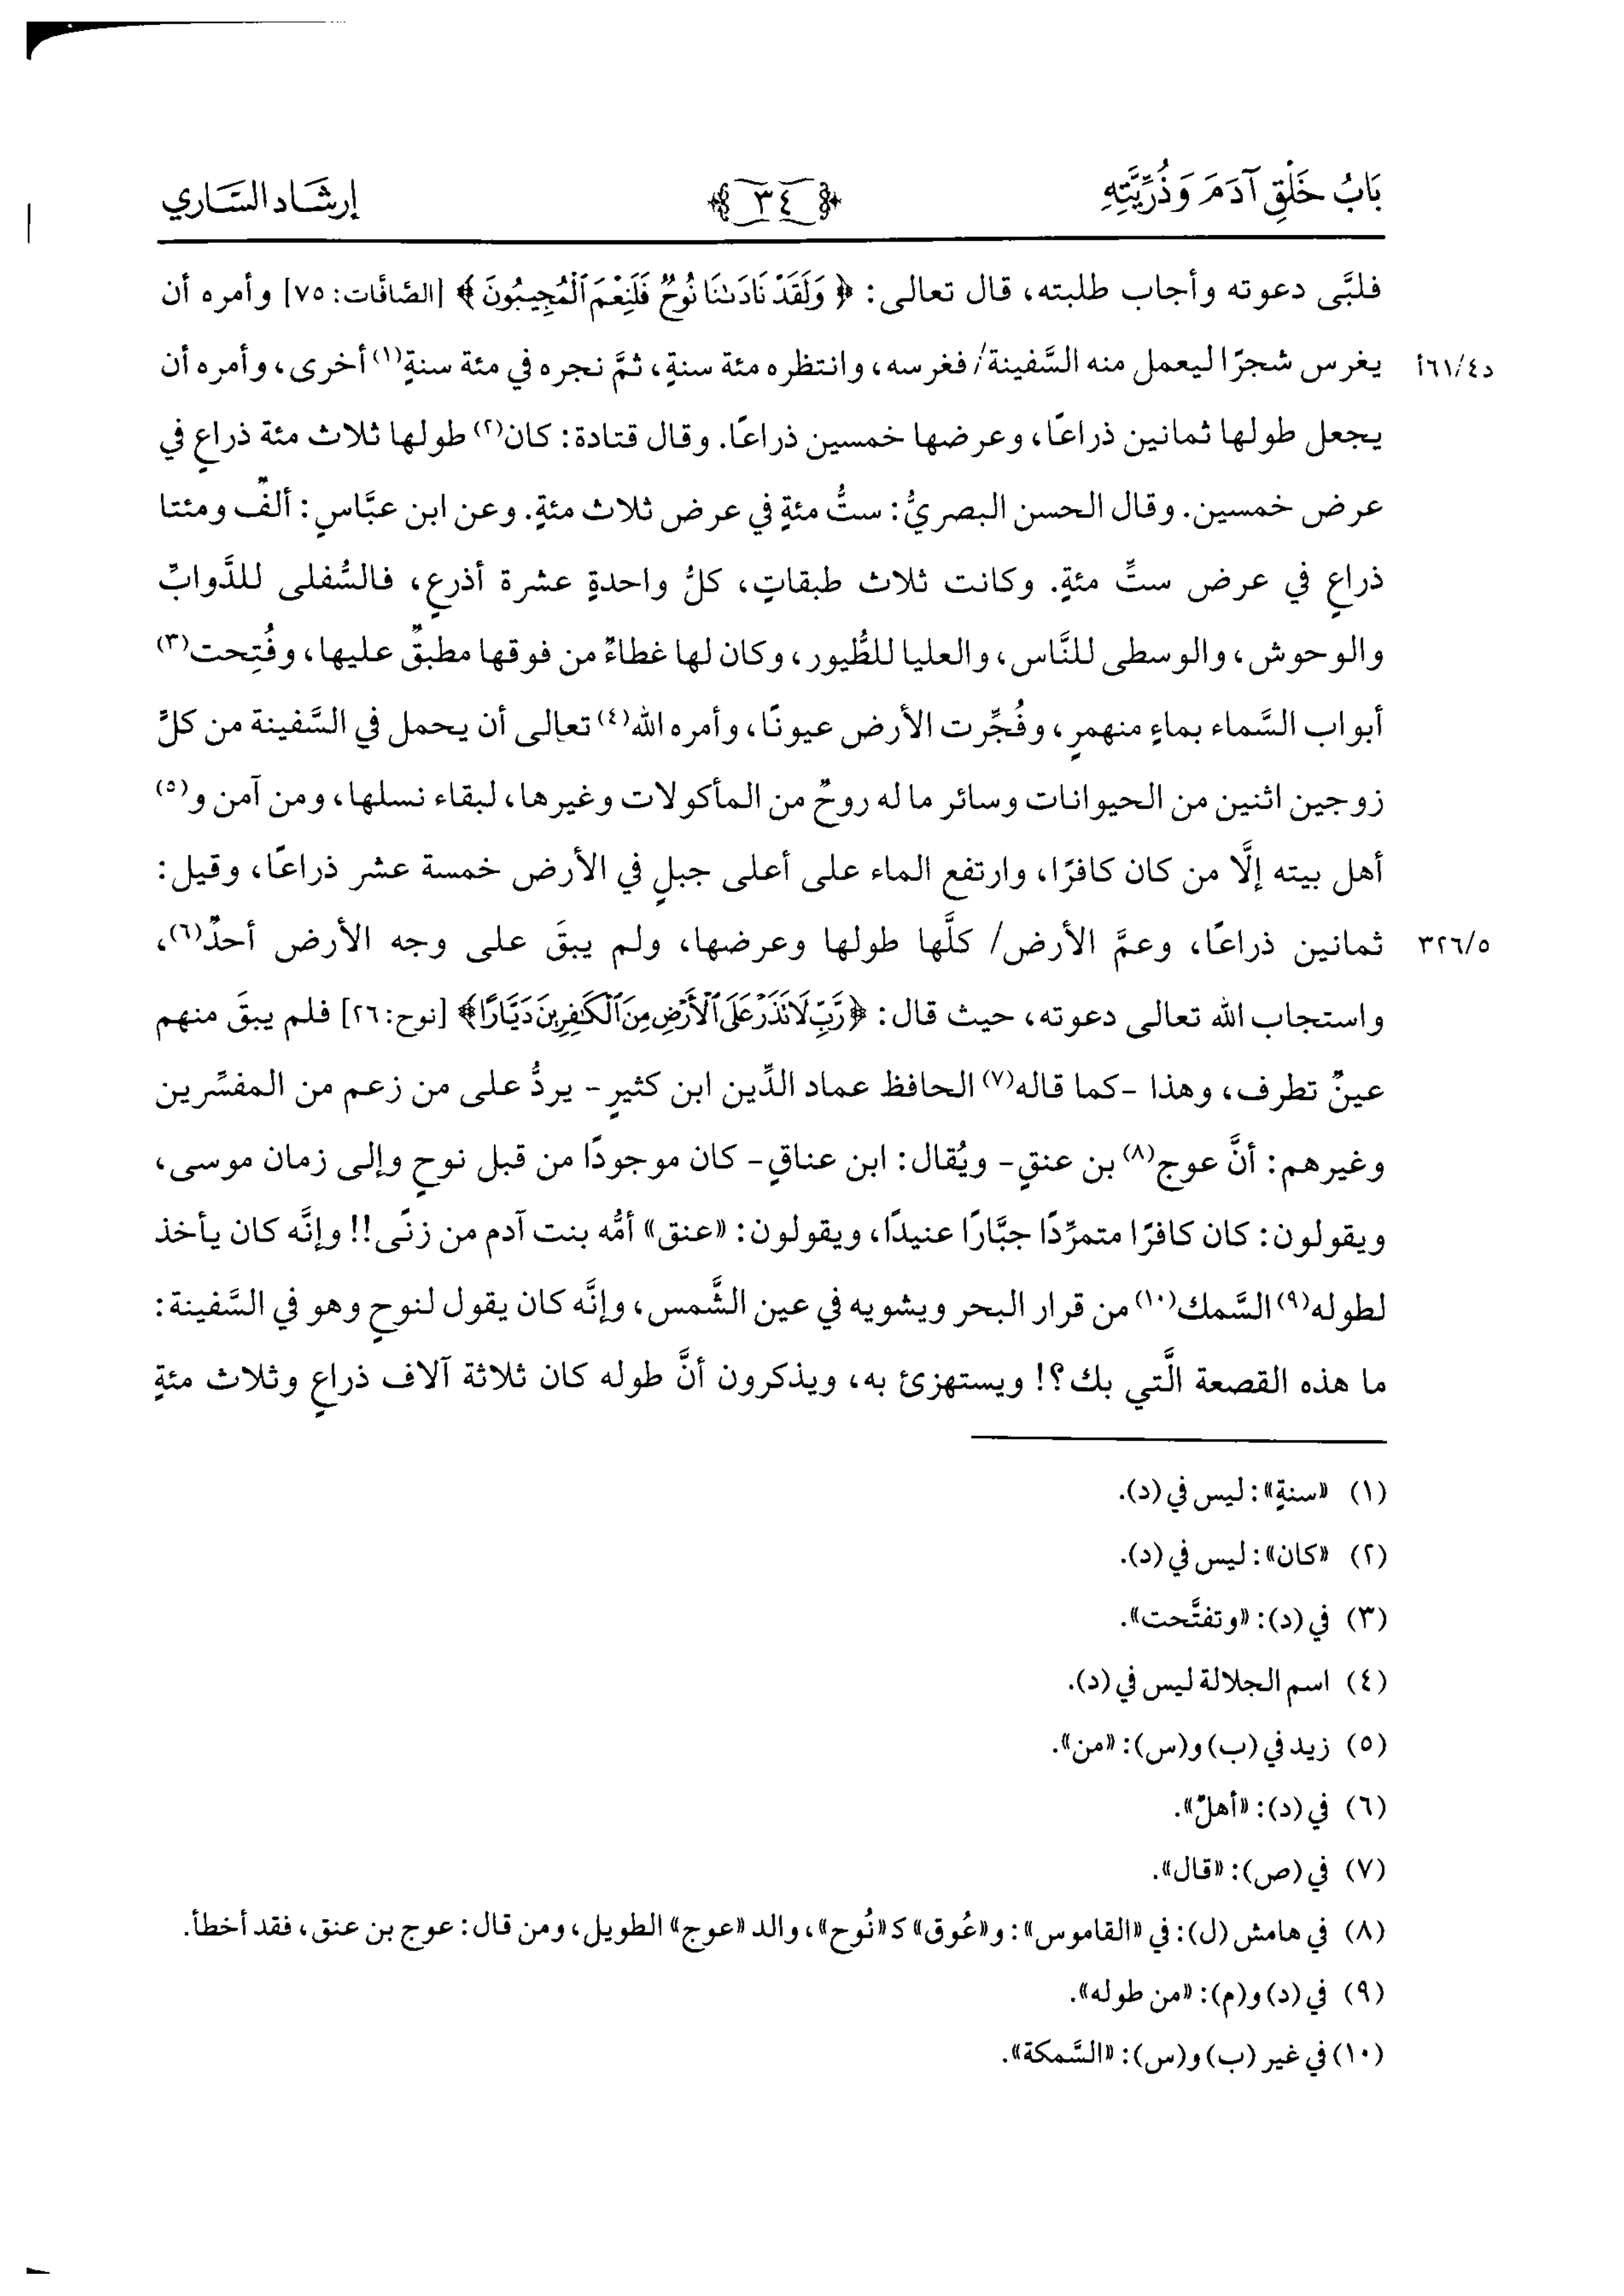 بَابُ خَلْقِ آدَمَ وَذُرِّيَّتِهِ
٣٤
إرشَاد السَّاري
فلبَّى دعوته وأجاب طلبته، قال تعالى: ﴿وَلَقَدْ نَادَىٰنَا نُوحٌ فَلَنِعْمَ ٱلْمُجِيبُونَ﴾ [الصَّافَّات: ٧٥] وأمره أن
د٦١/٤أ يغرس شجرًا ليعمل منه السَّفينة/ فغرسه، وانتظره مئة سنةٍ، ثمَّ نجره في مئة سنةٍ(١) أخرى، وأمره أن
يجعل طولها ثمانين ذراعًا، وعرضها خمسين ذراعًا. وقال قتادة: كان(٢) طولها ثلاث مئة ذراعٍ في
عرض خمسين. وقال الحسن البصريُّ: ستُّ مئةٍ في عرض ثلاث مئةٍ. وعن ابن عبَّاسٍ: ألفٌ ومئتا
ذراعٍ في عرض ستِّ مئةٍ. وكانت ثلاث طبقاتٍ، كلُّ واحدةٍ عشرة أذرعٍ، فالسُّفلى للدَّوابِّ
والوحوش، والوسطى للنَّاس، والعليا للطُّيور، وكان لها غطاءٌ من فوقها مطبقٌ عليها، وفُتِحت(٣)
أبواب السَّماء بماءٍ منهمرٍ، وفُجِّرت الأرض عيونًا، وأمره الله(٤) تعالى أن يحمل في السَّفينة من كلٍّ
زوجين اثنين من الحيوانات وسائر ما له روحٌ من المأكولات وغيرها، لبقاء نسلها، ومن آمن و(٥)
أهل بيته إلَّا من كان كافرًا، وارتفع الماء على أعلى جبلٍ في الأرض خمسة عشر ذراعًا، وقيل:
٣٢٦/٥ ثمانين ذراعًا، وعمَّ الأرض/ كلَّها طولها وعرضها، ولم يبقَ على وجه الأرض أحدٌ(٦)،
واستجاب الله تعالى دعوته، حيث قال: ﴿رَّبِّ لَا تَذَرْ عَلَى ٱلْأَرْضِ مِنَ ٱلْكَٰفِرِينَ دَيَّارًا﴾ [نوح: ٢٦] فلم يبقَ منهم
عينٌ تطرف، وهذا -كما قاله(٧) الحافظ عماد الدِّين ابن كثيرٍ- يردُّ على من زعم من المفسِّرين
وغيرهم: أنَّ عوج(٨) بن عنقٍ- ويُقال: ابن عناقٍ- كان موجودًا من قبل نوحٍ وإلى زمان موسى،
ويقولون: كان كافرًا متمرِّدًا جبَّارًا عنيدًا، ويقولون: «عنق» أمُّه بنت آدم من زنًى!! وإنَّه كان يأخذ
لطوله(٩) السَّمك(١٠) من قرار البحر ويشويه في عين الشَّمس، وإنَّه كان يقول لنوحٍ وهو في السَّفينة:
ما هذه القصعة الَّتي بك؟! ويستهزئ به، ويذكرون أنَّ طوله كان ثلاثة آلاف ذراعٍ وثلاث مئةٍ
(١) «سنةٍ»: ليس في (د).
(٢) «كان»: ليس في (د).
(٣) في (د): «وتفتَّحت».
(٤) اسم الجلالة ليس في (د).
(٥) زيد في (ب) و(س): «من».
(٦) في (د): «أهلٌ».
(٧) في (ص): «قال».
(٨) في هامش (ل): في «القاموس»: و«عُوق» كـ«نُوح»، والد «عوج» الطويل، ومن قال: عوج بن عنق، فقد أخطأ.
(٩) في (د) و(م): «من طوله».
(١٠) في غير (ب) و(س): «السَّمكة».